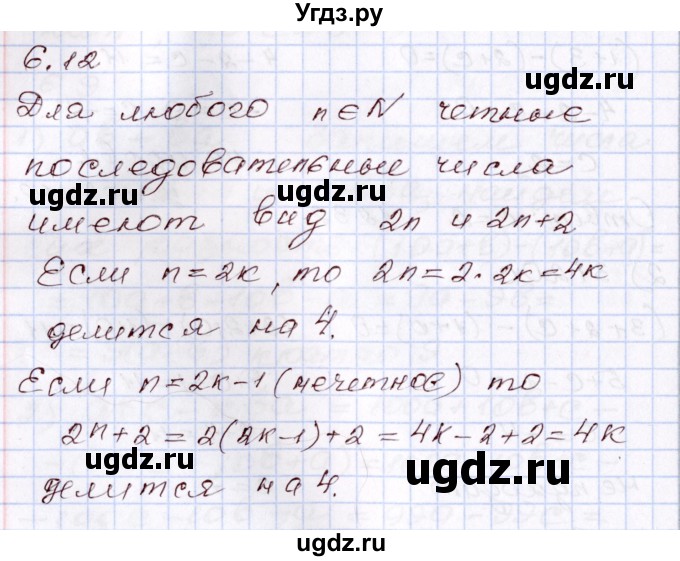 Угдз.ру
6.12
Для любого n∈N четные
последовательные числа
имеют вид 2n и 2n+2
Если n=2к, то 2n=2·2к=4к
делится на 4.
Если n=2к-1 (нечетное) то
2n+2=2(2к-1)+2=4к-2+2=4к
делится на 4.
ugdz.ru
ugdz.ru
ugdz.ru
ugdz.ru
ugdz.ru
ugdz.ru
ugdz.ru
ugdz.ru